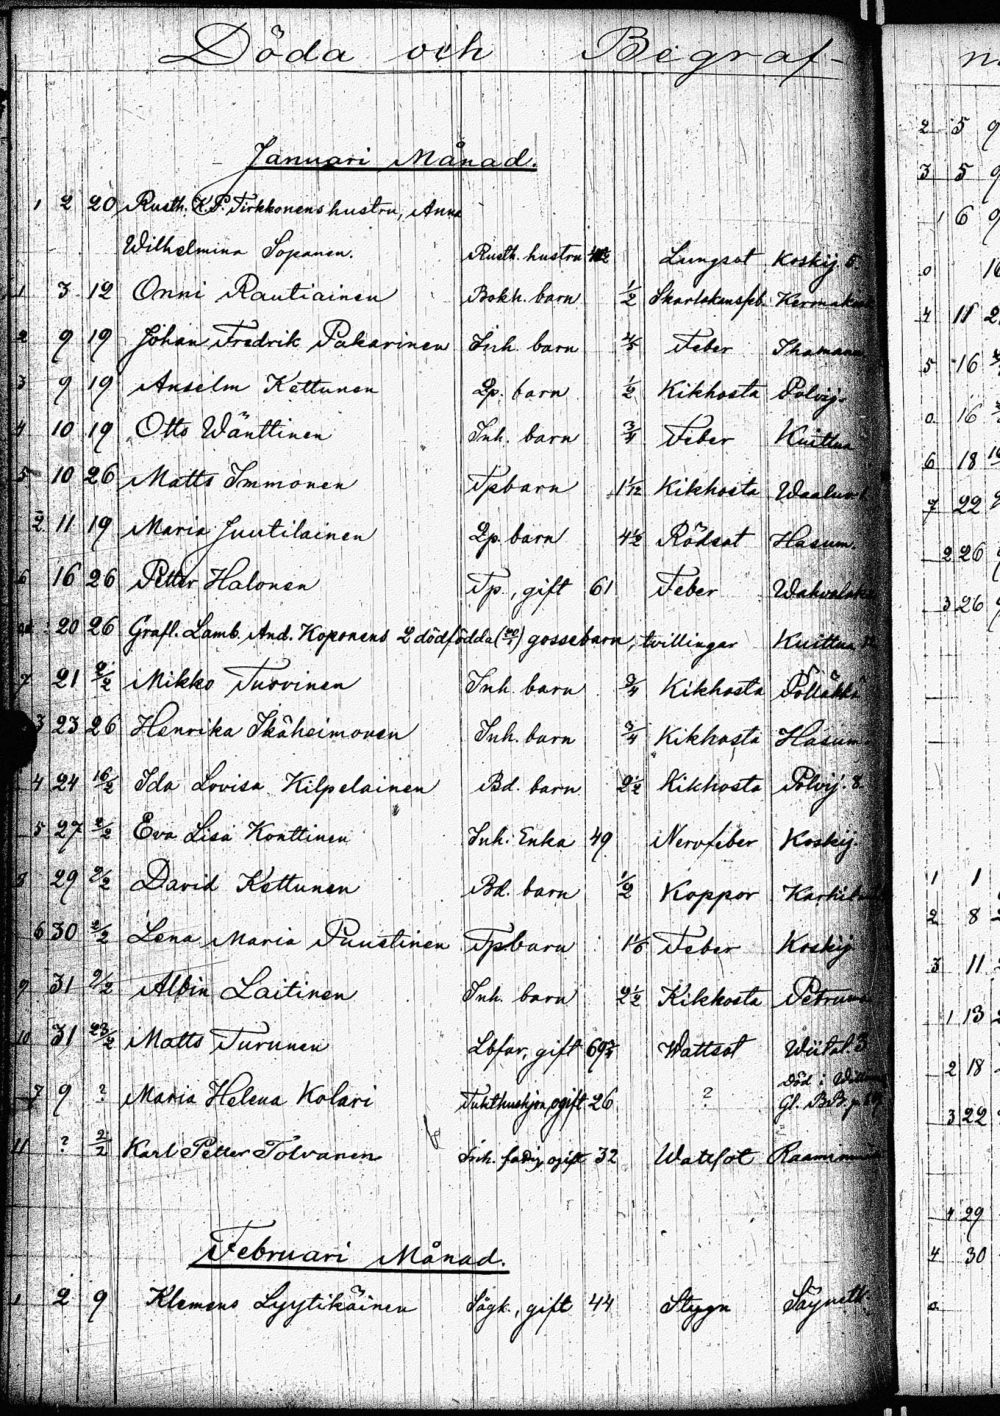 Döda och Begraf-
Januari Månad.
1 2 20 Rusth. K.P. Tirkkonens hustru, Anna
Wilhelmina Sopanen. Rusth. hustru Lungsot Koskij. 5.
1 3 12 Onni Rautiainen Bokh. barn 1/2 Skarlakansfeb.
2 9 19 Johan Fredrik Pakarinen Inh. barn Feber
3 9 19 Anselm Kettunen Lp. barn 1/2 Kikhosta Polvij.
4 10 19 Otto Wänttinen Inh. barn 3/4 Feber Kuittua
5 10 26 Matts Immonen Tpbarn 1 1/12 Kikhosta
2 11 19 Maria Juutilainen Lp. barn 4 1/2 Rödsot Hasum.
6 16 26 Petter Halonen Tp., gift 61 Feber
20 26 Grafl. Lamb. And. Koponens 2 dödfödda gossebarn, tvillingar Kuittua
7 21 2/2 Mikko Turvinen Inh. barn 3/4 Kikhosta Pölläkkä
3 23 26 Henrika Ikäheimonen Inh. barn 3/4 Kikhosta Hasum.
4 24 16/2 Ida Lovisa Kilpelainen Bd. barn 2 1/2 Kikhosta Polvij. 8
5 27 2/2 Eva Lisa Konttinen Inh. Enka 49 Nervfeber Koskij.
8 29 2/2 David Kettunen Bd. barn 1/2 Koppor
6 30 2/2 Lena Maria Puustinen Tpbarn Feber Koskij
9 31 2/2 Albin Laitinen Inh. barn 2 1/2 Kikhosta
10 31 23/2 Matts Turunen Lbfar, gift Wattsot
Död i
7 9 ? Maria Helena Kolari Tukthushjon, ogift 26 ? Gl. B.B. p.
11 ? 2/2 Karl Petter Tolvanen ogift 32 Wattsot
Februari Månad.
1 2 9 Klemens Lyytikäinen Sågk., gift 44 Stygn
2 5
3 5
1 6
11
5 16
16
6 18
7 22
2 26
3 26
1 1
2 8
3 11
1 13
2 18
3 22
4 29
4 30